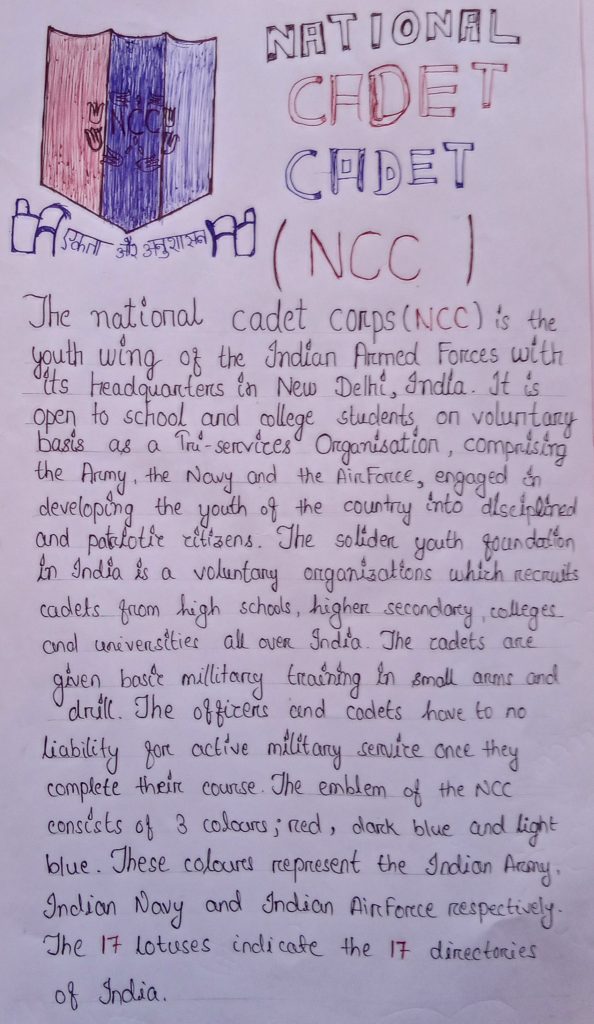 NATIONAL
CADET
CADET
(NCC)
NCC
एकता और अनुशासन
The national cadet corps (NCC) is the
youth wing of the Indian Armed Forces with
its headquarters in New Delhi, India. It is
open to school and college students, on voluntary
basis as a Tri-services Organisation, comprising
the Army, the Navy and the AirForce, engaged in
developing the youth of the country into disciplined
and patriotic citizens. The solider youth foundation
in India is a voluntary organizations which recruits
cadets from high schools, higher secondary, colleges
and universities all over India. The cadets are
given basic millitary training in small arms and
drill. The officers and cadets have to no
liability for active military service once they
complete their course. The emblem of the NCC
consists of 3 colours; red, dark blue and light
blue. These colours represent the Indian Army,
Indian Navy and Indian AirForce respectively.
The 17 lotuses indicate the 17 directories
of India.